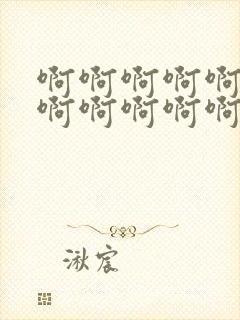 啊啊啊啊啊
啊啊啊啊啊
湫宸